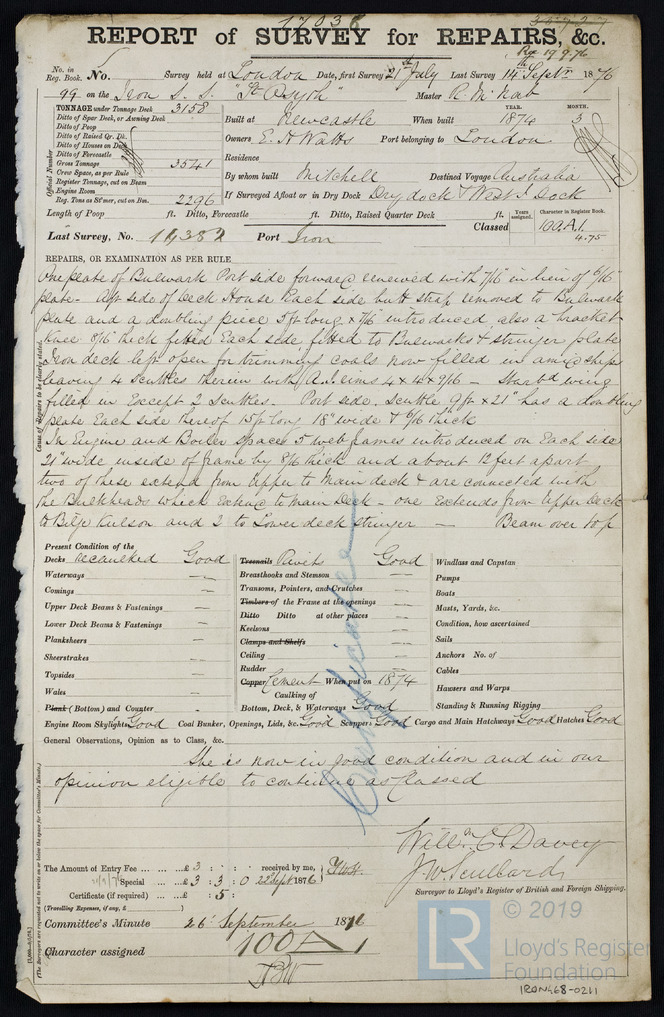 17038
REPORT of SURVEY for REPAIRS, &c.
Rec 19.9.76
No. in Reg. Book. No. Survey held at London Date, first Survey 21st July Last Survey 14th Septr 1876
99 on the Iron S.S. "St Osyth" Master R. McNab
TONNAGE under Tonnage Deck 3158
Ditto of Spar Deck, or Awning Deck
Ditto of Poop
Ditto of Raised Qr. Dk.
Ditto of Houses on Deck
Ditto of Forecastle
Gross Tonnage 3541
Crew Space, as per Rule
Register Tonnage, cut on Beam
Engine Room
Reg. Tons as St'mer, cut on Bm. 2296
Official Number
Built at Newcastle When built YEAR. 1874 MONTH. 3
Owners E. H Watts Port belonging to London
Residence
By whom built Mitchell Destined Voyage Australia
If Surveyed Afloat or in Dry Dock Dry dock & West I. Dock
Length of Poop ft. Ditto, Forecastle ft. Ditto, Raised Quarter Deck ft.
Years assigned. Character in Register Book.
Classed 100.A.1.
4.75
Last Survey, No. Port Iron
REPAIRS, OR EXAMINATION AS PER RULE
Cause of Repairs to be clearly stated.
One plate of Bulwark Port side forward renewed with 7/16" in lieu of 6/16"
plate - Aft side of Deck House Each side butt strap removed to Bulwark
plate and a doubling piece 5 ft long x 7/16 introduced, also a bracket
Knee 8/16 thick fitted Each side fitted to Bulwarks & stringer plate
Iron deck left open for trimming coals now filled in amidships
leaving 4 scuttles therein with A. 4 x 4 x 9/16 - Starbd wing
filled in Except 2 Scuttles. Port side, Scuttle 9ft x 21" has a doubling
plate Each side thereof 15ft long 18" wide & 6/16 thick
In Engine and Boiler Spaces 5 web frames introduced on Each side
21" wide inside of frame by 8/16 thick and about 12 feet apart
two of these extend from Upper to Main deck & are connected with
the Bulkheads which Extend to Main Deck - one Extends from Upper Deck
to Bilge Kulson and 2 to Lower deck stringer — Beam over top
Present Condition of the
Decks recaulked Good
Waterways
Comings
Upper Deck Beams & Fastenings
Lower Deck Beams & Fastenings
Planksheers
Sheerstrakes
Topsides
Wales
Plank (Bottom) and Counter
Treenails Rivits Good
Breasthooks and Stemson
Transoms, Pointers, and Crutches
Timbers of the Frame at the openings
Ditto Ditto at other places
Keelsons
Clamps and Shelfs
Ceiling
Rudder
Copper Cement When put on 1874
Caulking of
Bottom, Deck, & Waterways Good
Windlass and Capstan
Pumps
Boats
Masts, Yards, &c.
Condition, how ascertained
Sails
Anchors No. of
Cables
Hawsers and Warps
Standing & Running Rigging
Engine Room Skylights Good Coal Bunker, Openings, Lids, &c. Good Scuppers Good Cargo and Main Hatchways Good Hatches Good
General Observations, Opinion as to Class, &c.
She is now in good condition and in our
opinion eligible to continue as Classed
Certificate
Willm C. Davey
The Amount of Entry Fee ... ... ... £ 3 : : received by me,
Special ... £ 3 : 3 : 0 22 Sept 1876
Certificate (if required) ... £ : 5 :
(Travelling Expenses, if any, £ )
Surveyor to Lloyd's Register of British and Foreign Shipping.
Committee's Minute 26 September 1876
Character assigned 100 A 1
LR
© 2019
Lloyd's Register
Foundation
IRON468-0211